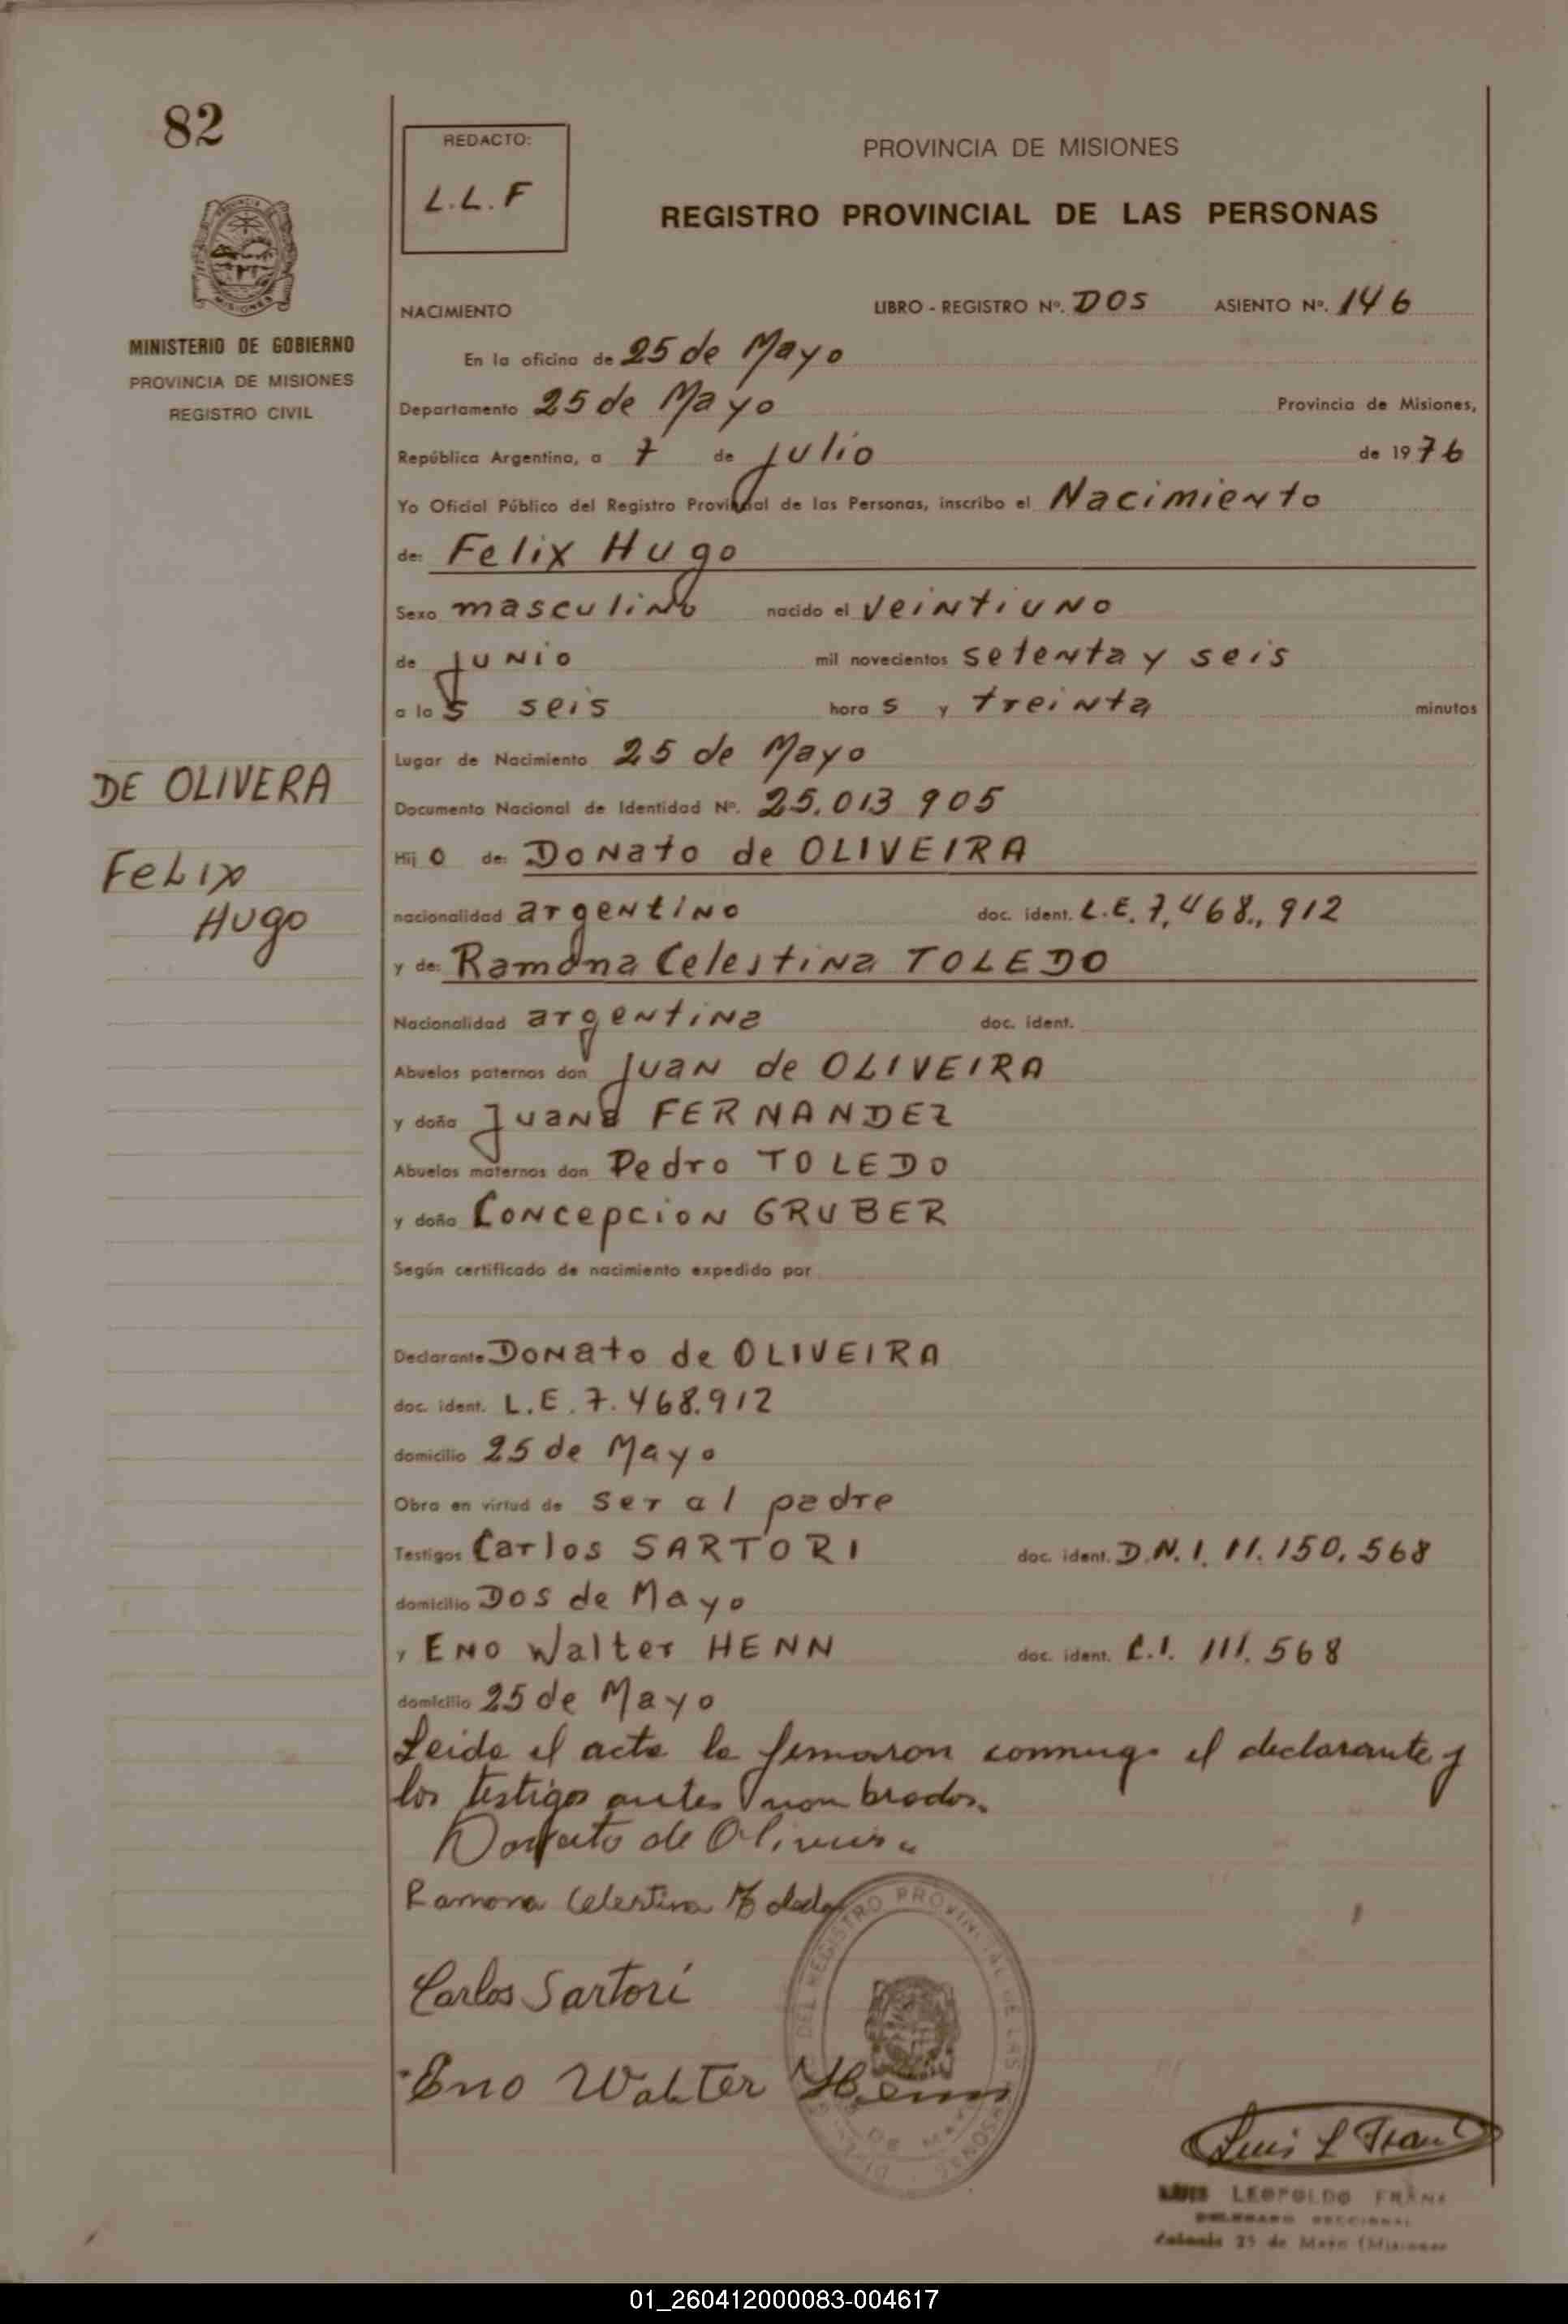 82
REDACTO:
L.L.F
PROVINCIA DE MISIONES
REGISTRO PROVINCIAL DE LAS PERSONAS
MINISTERIO DE GOBIERNO
PROVINCIA DE MISIONES
REGISTRO CIVIL
NACIMIENTO LIBRO - REGISTRO Nº. DOS ASIENTO Nº. 146
En la oficina de 25 de Mayo
Departamento 25 de Mayo Provincia de Misiones,
República Argentina, a 7 de julio de 1976
Yo Oficial Público del Registro Provincial de las Personas, inscribo el Nacimiento
de: Felix Hugo
Sexo masculino nacido el veintiuno
de junio mil novecientos setenta y seis
a las seis horas y treinta minutos
Lugar de Nacimiento 25 de Mayo
DE OLIVERA
Felix
Hugo
Documento Nacional de Identidad Nº. 25.013 905
Hijo de: Donato de OLIVEIRA
nacionalidad argentino doc. ident. L.E. 7.468., 912
y de: Ramona Celestina TOLEDO
Nacionalidad argentina doc. ident.
Abuelos paternos don Juan de OLIVEIRA
y doña Juana FERNANDEZ
Abuelos maternos don Pedro TOLEDO
y doña Concepcion GRUBER
Según certificado de nacimiento expedido por
Declarante Donato de OLIVEIRA
doc. ident. L.E. 7.468.912
domicilio 25 de Mayo
Obra en virtud de ser al padre
Testigos Carlos SARTORI doc. ident. D.N.I. 11.150.568
domicilio Dos de Mayo
y Eno Walter HENN doc. ident. C.I. 111.568
domicilio 25 de Mayo
Leida el acta la firmaron conmigo el declarante y
los testigos antes nombrados.
Donato de Oliveira
Ramona Celestina Toledo
Carlos Sartori
Eno Walter Henn
DEL REGISTRO PROVINCIAL DE LAS PERSONAS
DE MAYO
MISIONES
Luis L Frank
LUIS LEOPOLDO
DELEGADO SECCIONAL
Colonia 25 de Mayo (Misiones
01_260412000083-004617